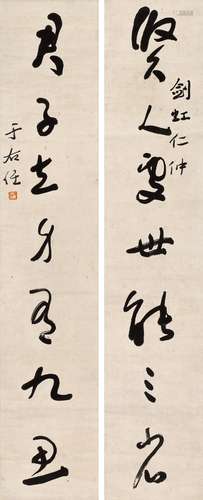 賢人處世能三省
劍虹仁仲
君子立身有九思
于右任